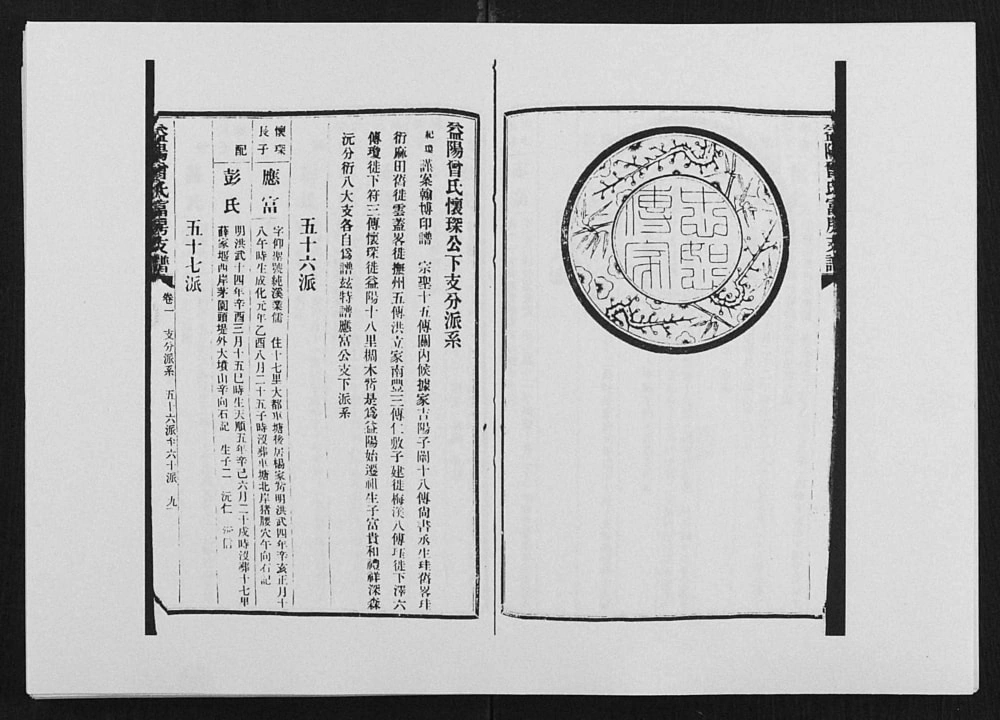 忠恕
傳家
益陽曾氏富房支譜
益陽曾氏懷琛公下支分派系
謹案翰博印譜 宗聖十五傳關內侯據家吉陽子闡十八傳尚書丞生珪舊畧珪
衍麻田舊徙雲蓋畧徙撫州五傳洪立家南豐三傳仁敷子建徙梅溪八傳珏徙下澤六
傳瓊徙下符三傳懷琛徙益陽十八里楓木㟁是爲益陽始遷祖生子富貴和禮祥深森
沅分衍八大支各自爲譜玆特譜應富公支下派系
五十六派
懷琛
長子
應富
字仰聖號純溪業儒 住十七里大都車塘後居楊家㟁明洪武四年辛亥正月十
八午時生成化元年乙酉八月二十五子時沒葬車塘北岸猪腰穴午向石記
配
彭氏
明洪武十四年辛酉三月十五巳時生天順五年辛巳六月二十戌時沒葬十七里
薛家堰西岸茅園頭堤外大墳山辛向石記 生子二 沅仁 信
五十七派
益陽曾氏富房支譜
卷一 支分派系 五十六派至六十派 九